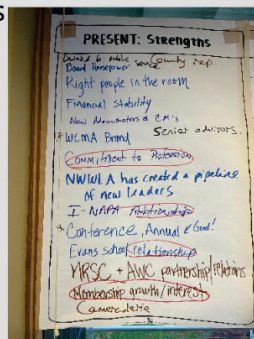 S
PRESENT: Strengths
Devoted to public service County rep.
Board Horsepower
Right people in the room
Financial Stability
New Administrators & CM's
* WCMA Brand Senior advisors.
Commitment to Profession
NWWLA has created a pipeline
of new leaders
I-NAPA Relationship
* Conference, Annual & Good!
Evans School relationship
MRSC + AWC partnership/relations
Membership growth/interest
Camaraderie